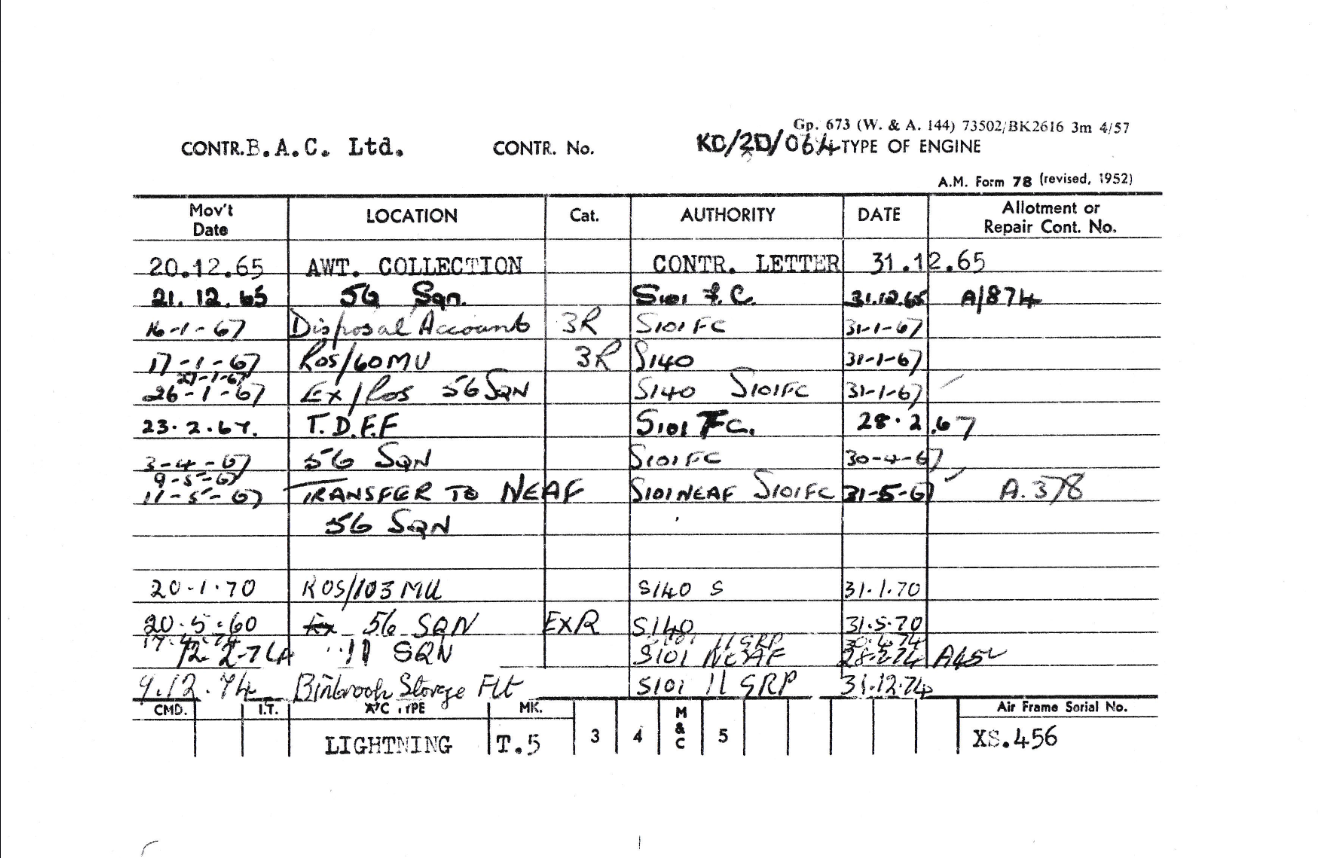 Gp. 673 (W. & A. 144) 73502/BK2616 3m 4/57
CONTR. B.A.C. Ltd. CONTR. No. KD/2D/064 TYPE OF ENGINE
A.M. Form 78 (revised, 1952)
Mov't Date LOCATION Cat. AUTHORITY DATE Allotment or Repair Cont. No.
20.12.65 AWT. COLLECTION CONTR. LETTER 31.12.65
21.12.65 56 Sqn. S101 F.C. 31.12.65 A/874
16-1-67 Disposal Account 3R S101FC 31-1-67
17-1-67 ROS/60MU 3R S140 31-1-67
27-1-67
26-1-67 Ex/Ros 56 SQN S140 S101FC 31-1-67
23.2.67. T.D.F.F S101 FC. 28.2.67
3-4-67 56 SQN S101FC 30-4-67
9-5-67
11-5-67 TRANSFER TO NEAF S101NEAF S101FC 31-5-67 A.378
56 SQN
20.1.70 ROS/103 MU S140 S 31.1.70
20.5.60 Ex 56 SQN EXR S140 31.5.70
S101 11GRP
12.2.74 11 SQN S101 NEAF 28.2.74
9.12.74 Binbrook Storage Flt S101 11 GRP 31.12.74
CMD. I.T. A/C TYPE MK. 3 4 M & C 5 Air Frame Serial No.
LIGHTNING T.5 XS.456